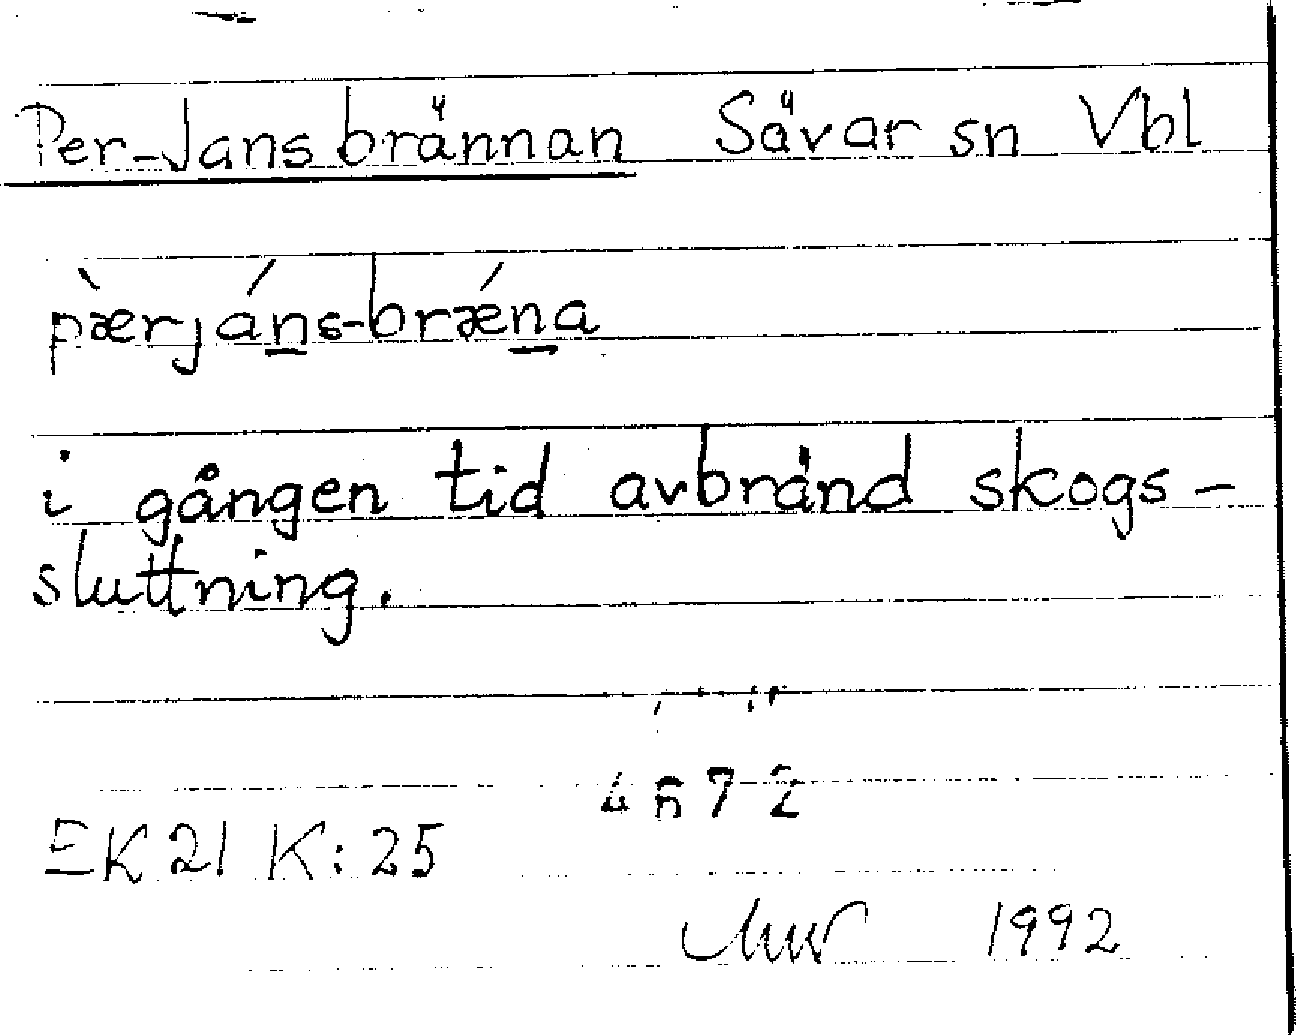 Per-Jansbrännan Sävar sn Vbl
pæ̀rjáns-brǽna
i gången tid avbränd skogs-
sluttning.
EK 21 K: 25
1992